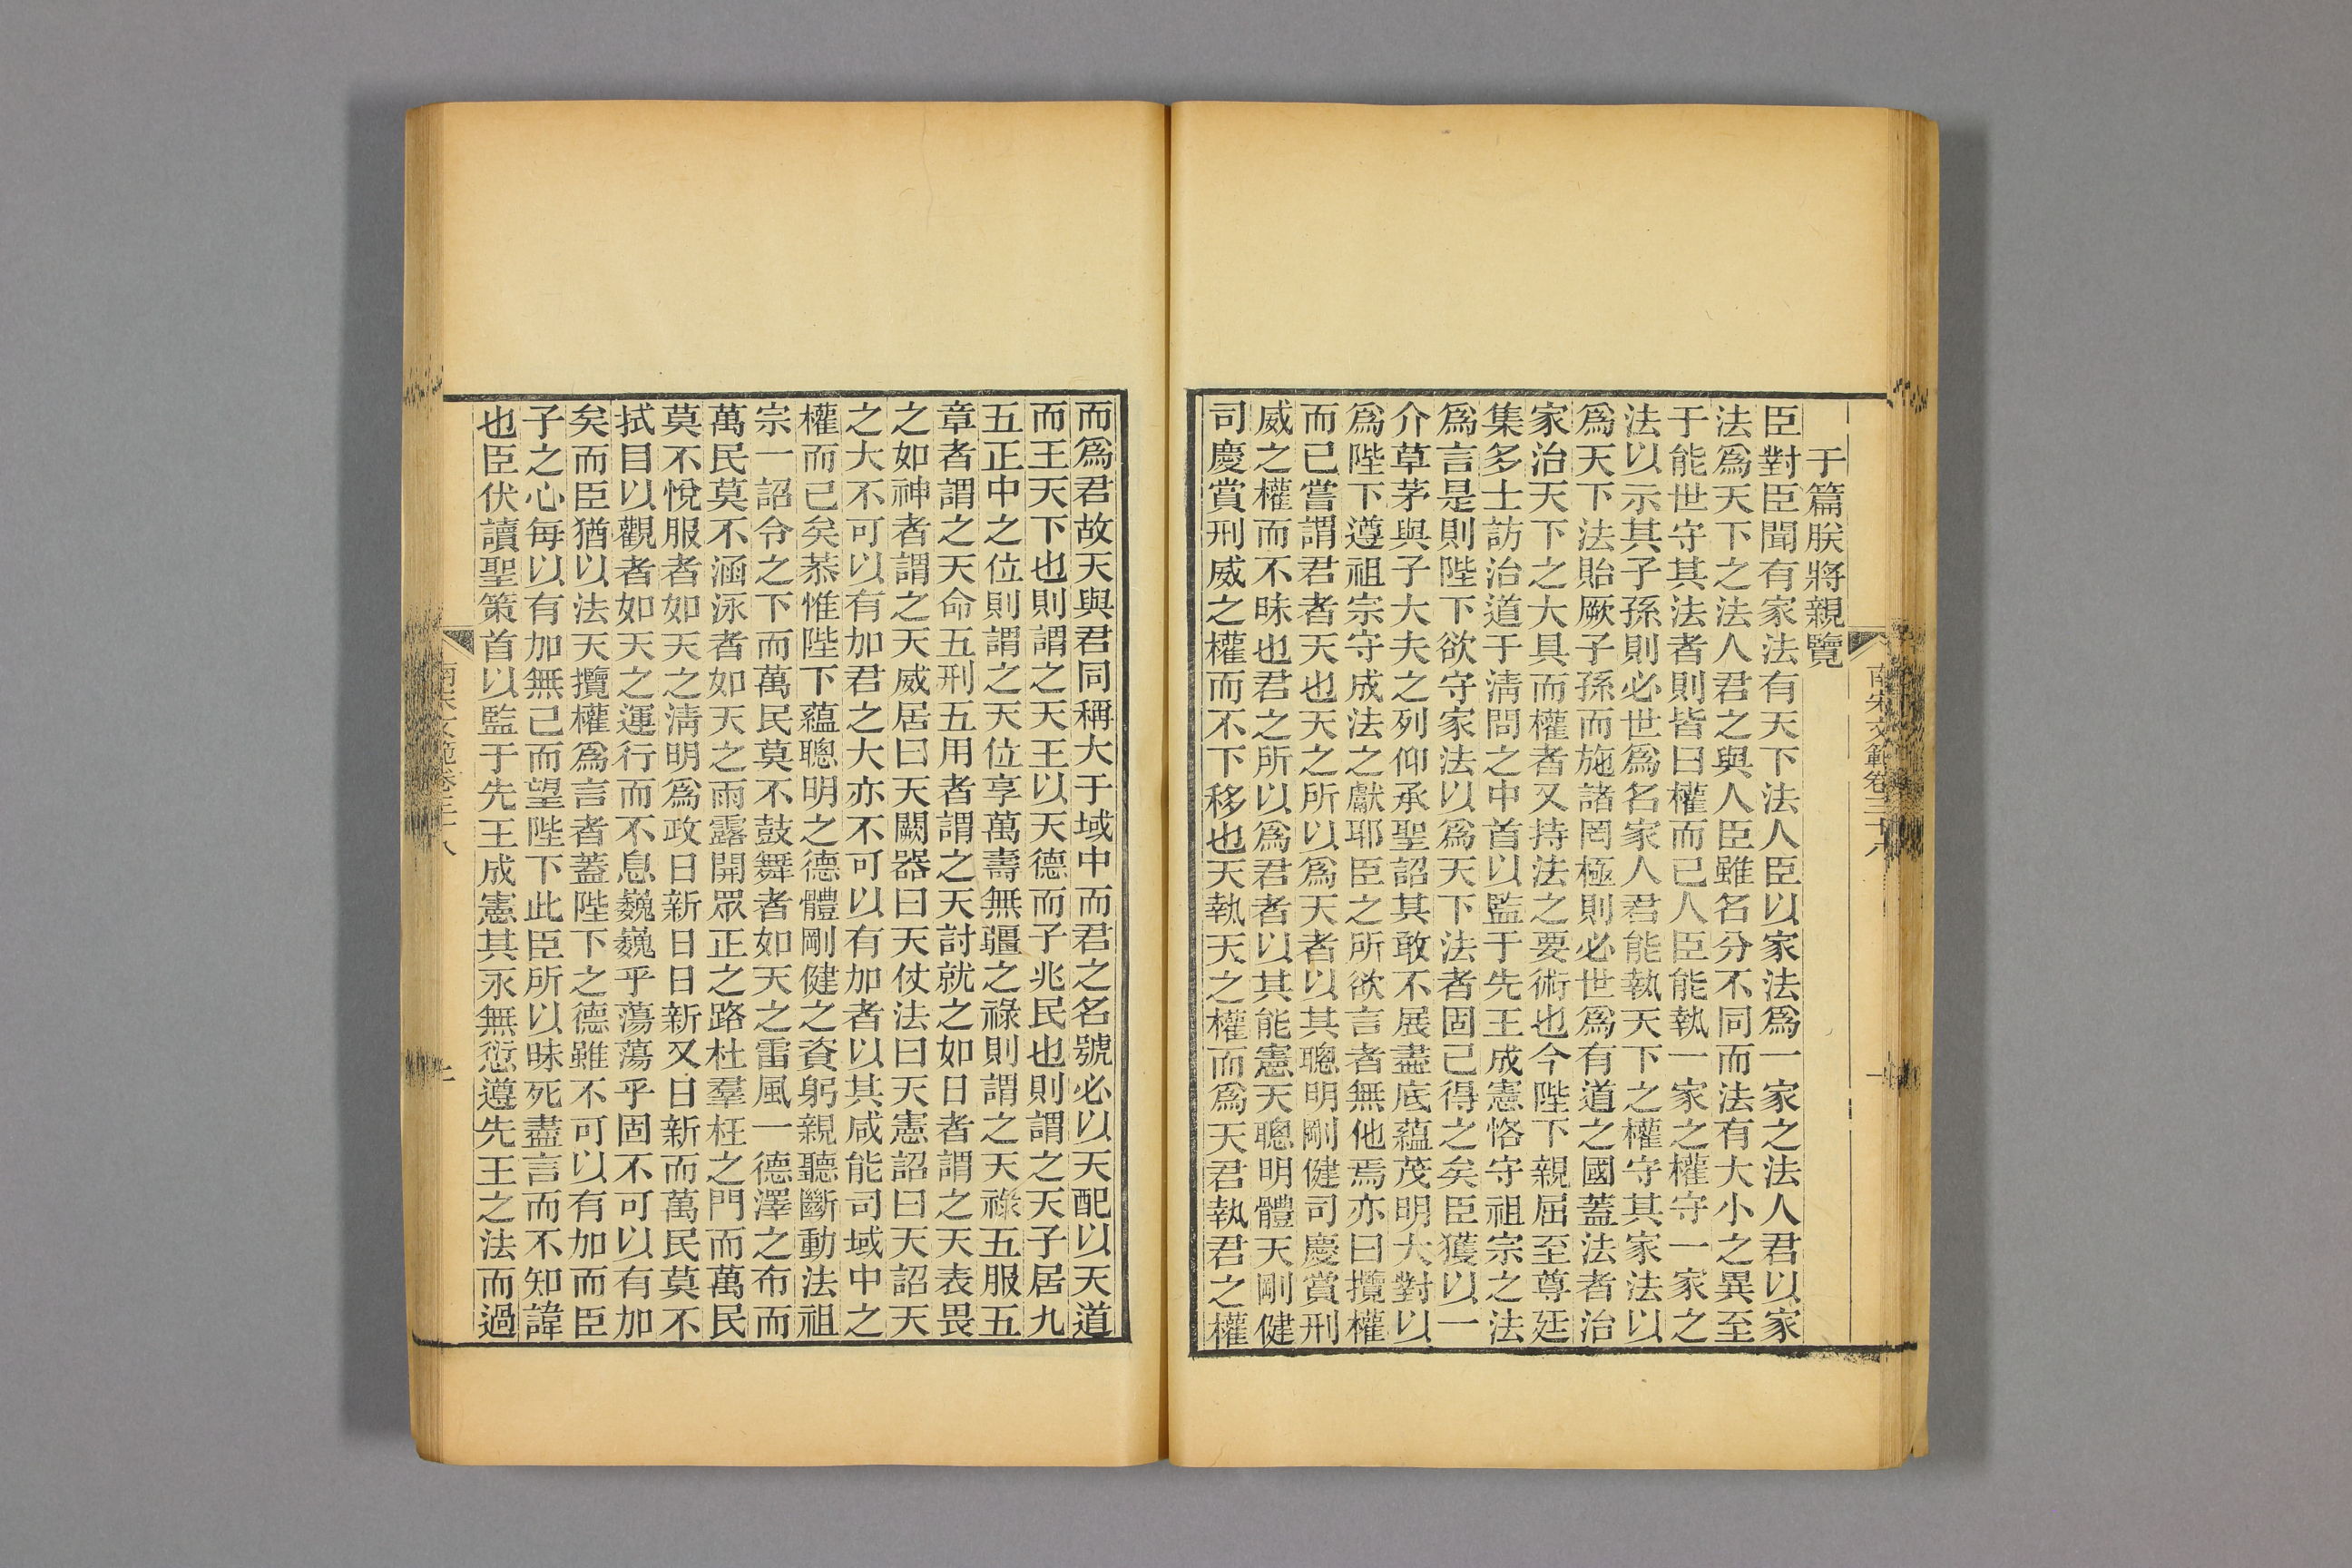 于篇朕將親覽
臣對臣聞有家法有天下法人臣以家法爲一家之法人君以家
法爲天下之法人君之與人臣雖名分不同而法有大小之異至
于能世守其法者則皆曰權而已人臣能執一家之權守一家之
法以示其子孫則必世爲名家人君能執天下之權守其家法以
爲天下法貽厥子孫而施諸罔極則必世爲有道之國蓋法者治
家治天下之大具而權者又持法之要術也今陛下親屈至尊廷
集多士訪治道于淸問之中首以監于先王成憲恪守祖宗之法
爲言是則陛下欲守家法以爲天下法者固已得之矣臣獲以一
介草茅與子大夫之列仰承聖詔其敢不展盡底蘊茂明大對以
爲陛下遵祖宗守成法之獻耶臣之所欲言者無他焉亦曰攬權
而已嘗謂君者天也天之所以爲天者以其聰明剛健司慶賞刑
威之權而不昧也君之所以爲君者以其能憲天聰明體天剛健
司慶賞刑威之權而不下移也天執天之權而爲天君執君之權
南宋文範卷三十八
一
而爲君故天與君同稱大于域中而君之名號必以天配以天道
而王天下也則謂之天王以天德而子兆民也則謂之天子居九
五正中之位則謂之天位享萬壽無疆之祿則謂之天祿五服五
章者謂之天命五刑五用者謂之天討就之如日者謂之天表畏
之如神者謂之天威居曰天闕器曰天仗法曰天憲詔曰天詔天
之大不可以有加君之大亦不可以有加者以其咸能司域中之
權而已矣恭惟陛下蘊聰明之德體剛健之資躬親聽斷動法祖
宗一詔令之下而萬民莫不鼓舞者如天之雷風一德澤之布而
萬民莫不涵泳者如天之雨露開眾正之路杜羣枉之門而萬民
莫不悅服者如天之淸明爲政日新日日新又日新而萬民莫不
拭目以觀者如天之運行而不息巍巍乎蕩蕩乎固不可以有加
矣而臣猶以法天攬權爲言者蓋陛下之德雖不可以有加而臣
子之心每以有加無已而望陛下此臣所以昧死盡言而不知諱
也臣伏讀聖策首以監于先王成憲其永無愆遵先王之法而過
南宋文範卷三十八